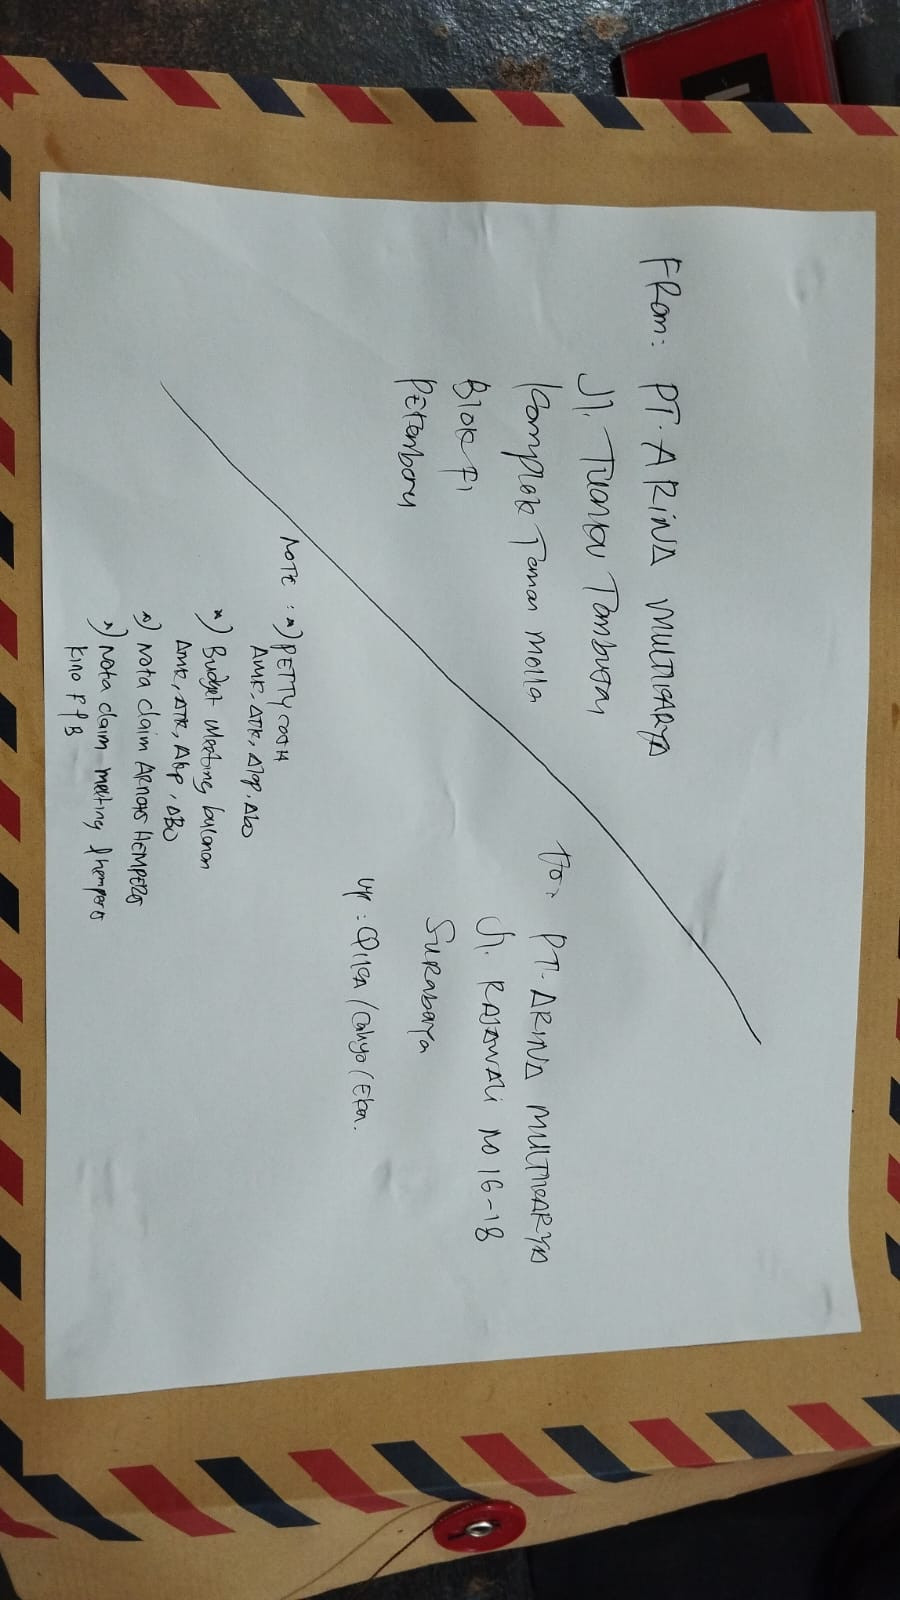 From: PT. ARINA MULTIKARYA
Jl. Tuanku Tambusai
Komplek Taman Mella
Blok F1
PEKANBARU
to: PT. ARINA MULTIKARYA
Jl. RAJAWALI NO 16-18
Surabaya
up: /Cahyo/Eka.
NOTE: *) PETTY CASH
AMK, ATK, Abp, Abo
*) Budget Meeting bulanan
AMK, ATK, Abp, ABO
*) Nota claim HEMPERS
*) Nota claim meeting hempers
kino